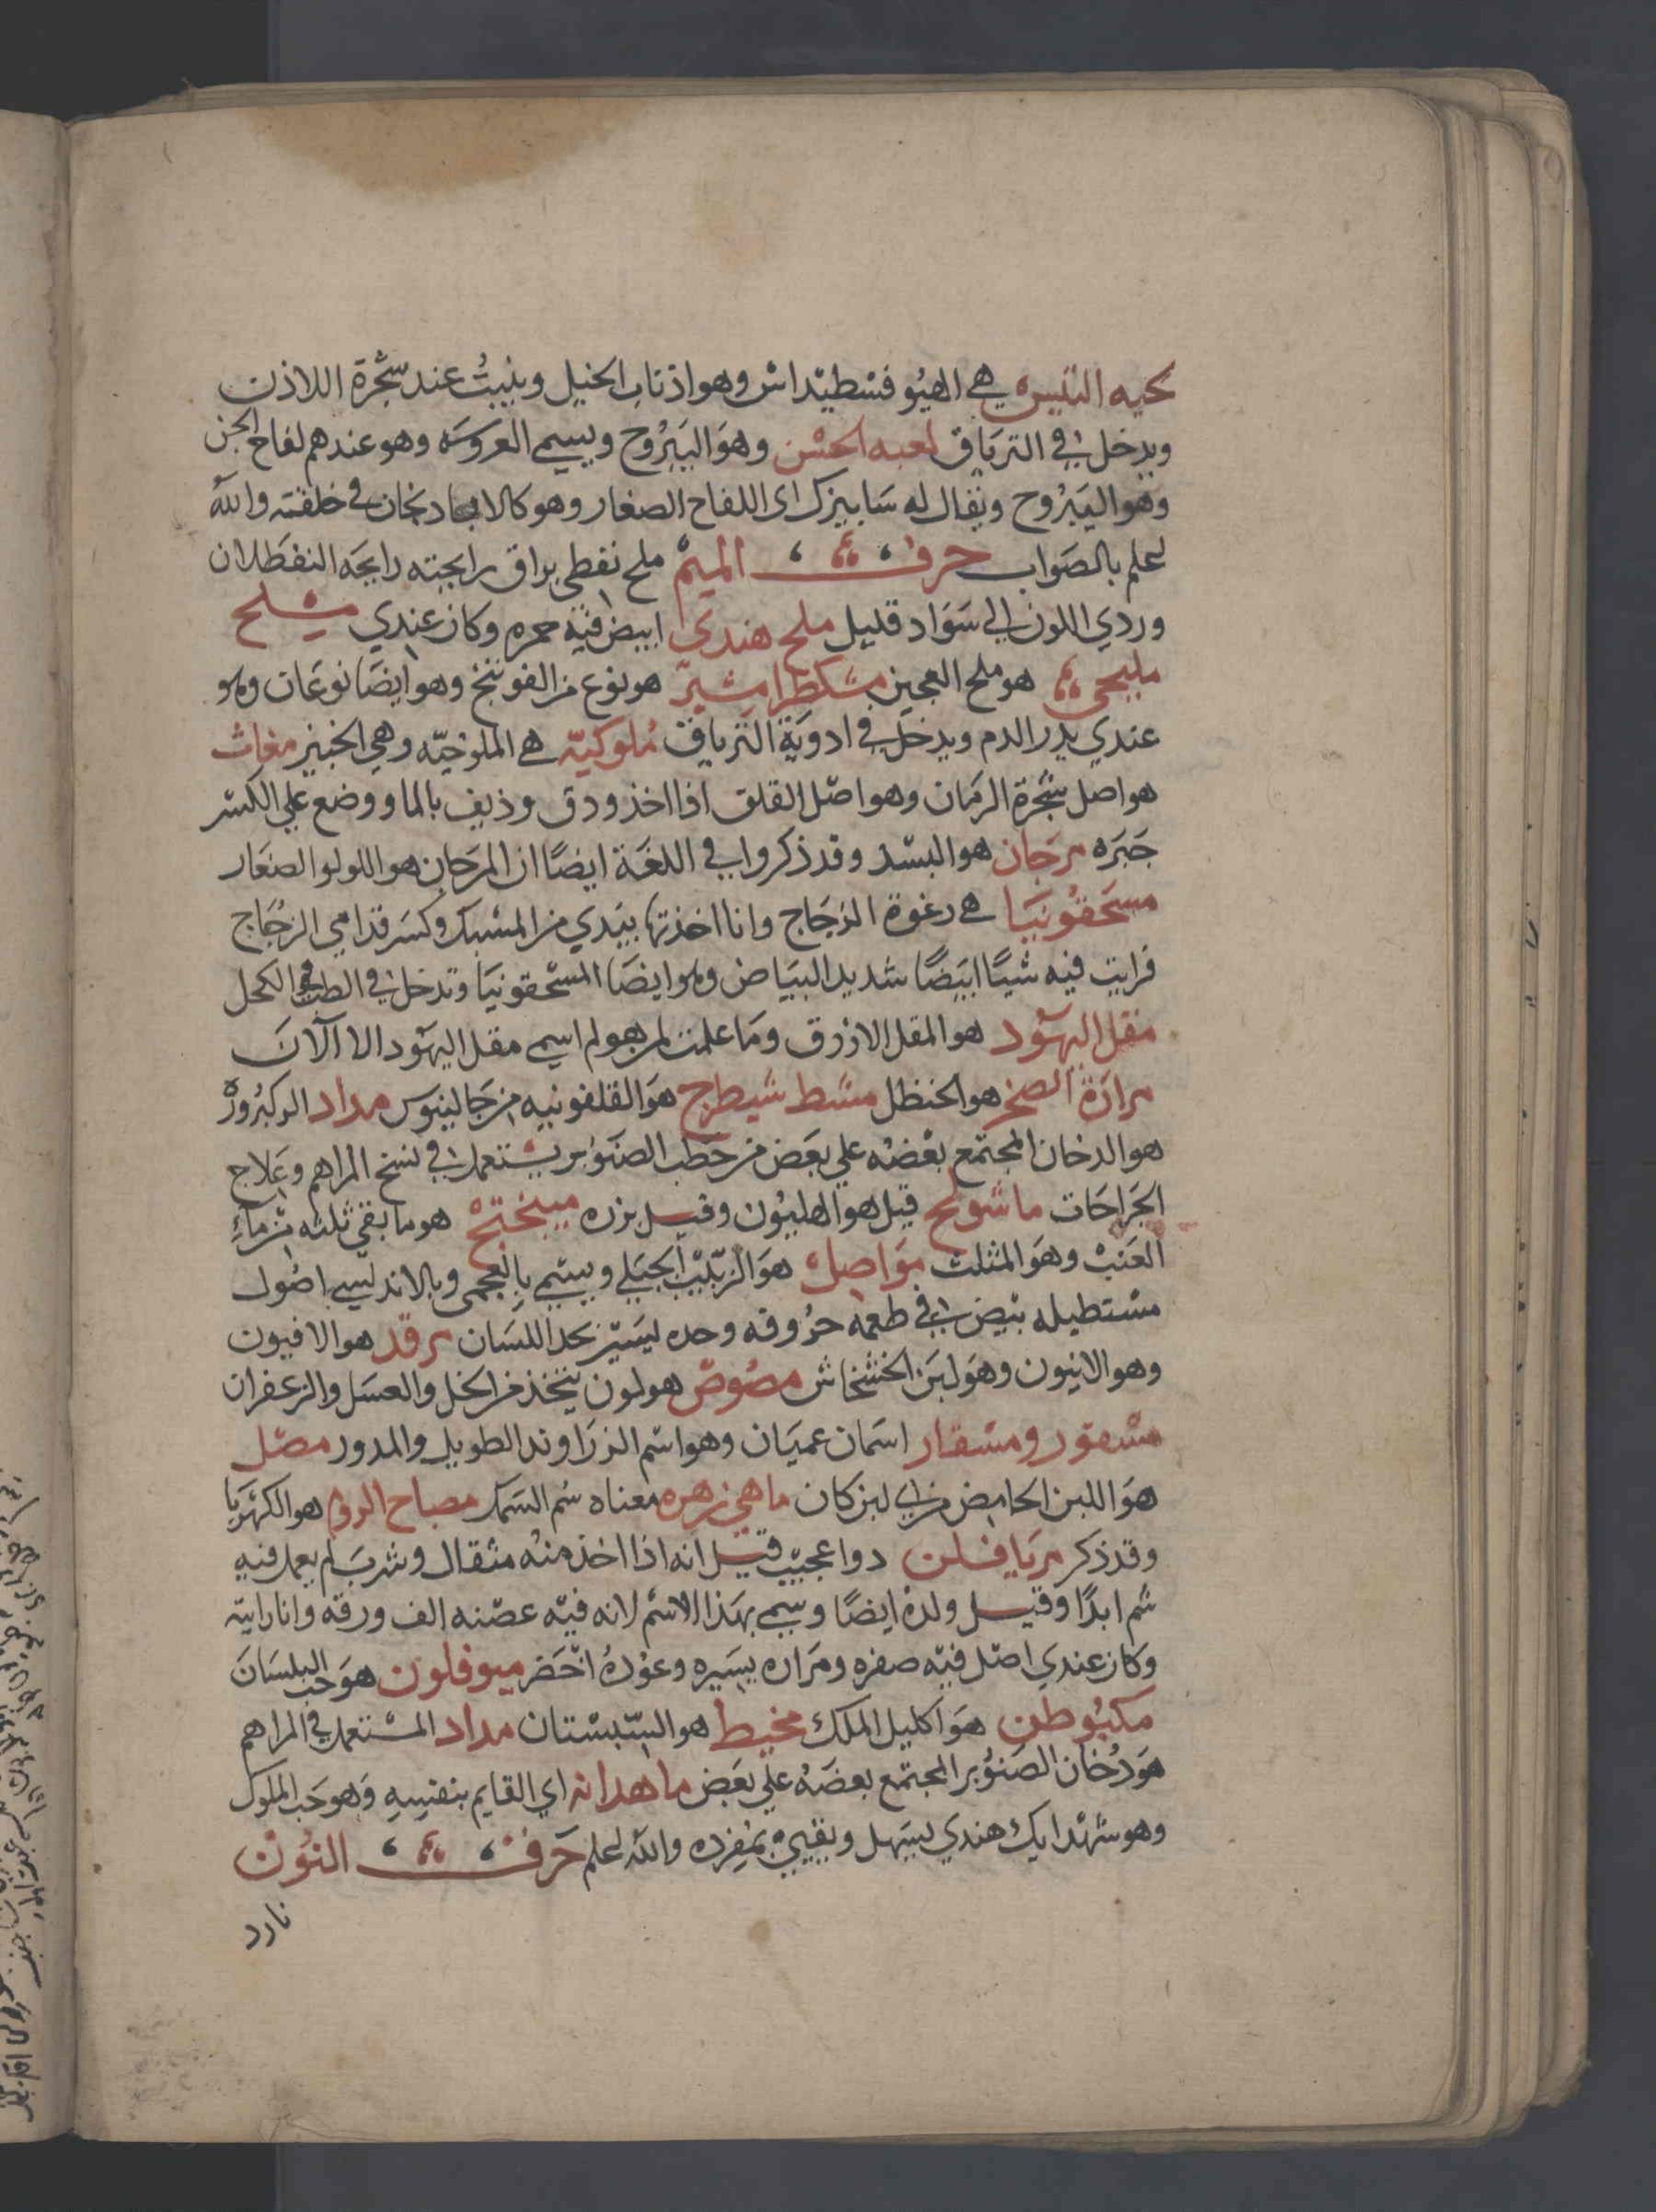 لحيه التيس هي الهيوفسطيداش وهو اذناب الخيل وينبت عند شجرة اللاذن
ويدخل في الترياق لعبه الحسن وهو اليبروح ويسمي العروسه وهو عندهم لفاح الجن
وهو اليبروح ويقال له سابيزك اي اللفاح الصغار وهو كالابادنجان في خلقته والله
اعلم بالصواب حرف الميم ملح نفطي براق رايحته رايحه النفط لان
وردي اللون الي سواد قليل ملح هندي ابيض فيه حمره وكان عندي ملح
مليحي هو ملح العجين مشكطرامشير هو نوع من الفوتنج وهو ايضا نوعان وهو
عندي يدر الدم ويدخل في ادوية الترياق ملوكيه هي الملوخيه وهي الخبيز مغاث
هو اصل شجرة الرمان وهو اصل القلقل اذا اخذ ودق وذيف بالما ووضع علي الكسر
جبره مرجان هو البسد وقد ذكروا في اللغة ايضا ان المرجان هو اللولو الصغار
مسحقونيا هي رغوة الزجاج وانا اخذتها بيدي من المسبك وكسر قدامي الزجاج
فرايت فيه شيا ابيضا شديد البياض وهو ايضا المسحقونيا وتدخل في الطب في الكحل
مقل اليهود هو المقل الازرق وما علمت لم هو لم اسمي مقل اليهود الا الآن
مرارة الصخر هو الحنظل مسط شيطرج هو القلفونيه من جالينوس مداد الركبروزه
هو الدخان المجتمع بعضه علي بعض من حطب الصنوبر يستعمل في نسخ المراهم وعلاج
الجراحات ماشونح قيل هو الهليون وقيل بزره ميبختج هو ما بقي ثلثه من ماء
العنب وهو المثلث مواصل هو الزبيب الجبلي ويسمي بالعجمي وبالاندلسي اصول
مستطيله بيض في طعمه حروقه وحده ليسير يحد اللسان مرقد هو الافيون
وهو الابيون وهو لبن الخشخاش مصوص هو لون يتخذ من الخل والعسل والزعفران
مسمقور ومسقار اسمان عميان وهو اسم الزراوند الطويل والمدور مصل
هو اللبن الحامض من اي لبن كان ماهي زهره معناه سم السمك مصباح الروم هو الكهربا
وقد ذكر مريافلن دوا عجيب قيل انه اذا اخذ منه مثقال وشرب لم يعمل فيه
سم ابدا وقيل ولده ايضا وسمي بهذا الاسم لانه فيه عصنه الف ورقه وانا رايته
وكان عندي اصل فيه صفره ومراره يسيره وعوده اخضر ميوفلون هو حب البلسان
مكبوطن هو اكليل الملك مخيط هو السبستان مداد المستعمل في المراهم
هو دخان الصنوبر المجتمع بعضه علي بعض ماهدانه اي القايم بنفسه وهو حب الملوك
وهو شهدايك هندي يسهل ويقيي بمفرده والله اعلم حرف النون
نارد